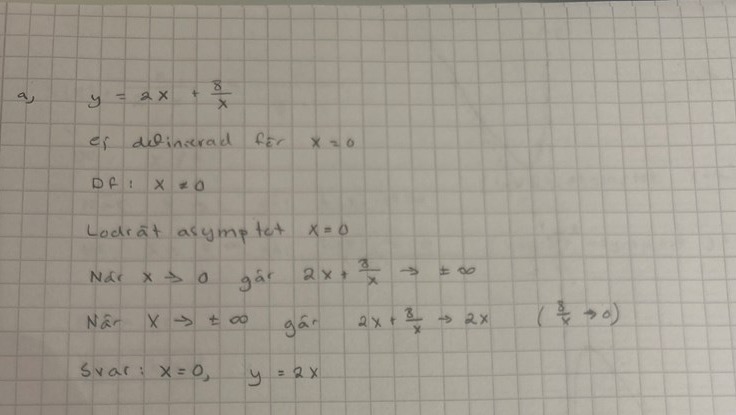 a) y = 2x + 8/x
ej definierad för x = 0
Df: x ≠ 0
Lodrät asymptot x = 0
När x → 0 går 2x + 8/x → ± ∞
När x → ± ∞ går 2x + 8/x → 2x (8/x → 0)
Svar: x = 0, y = 2x